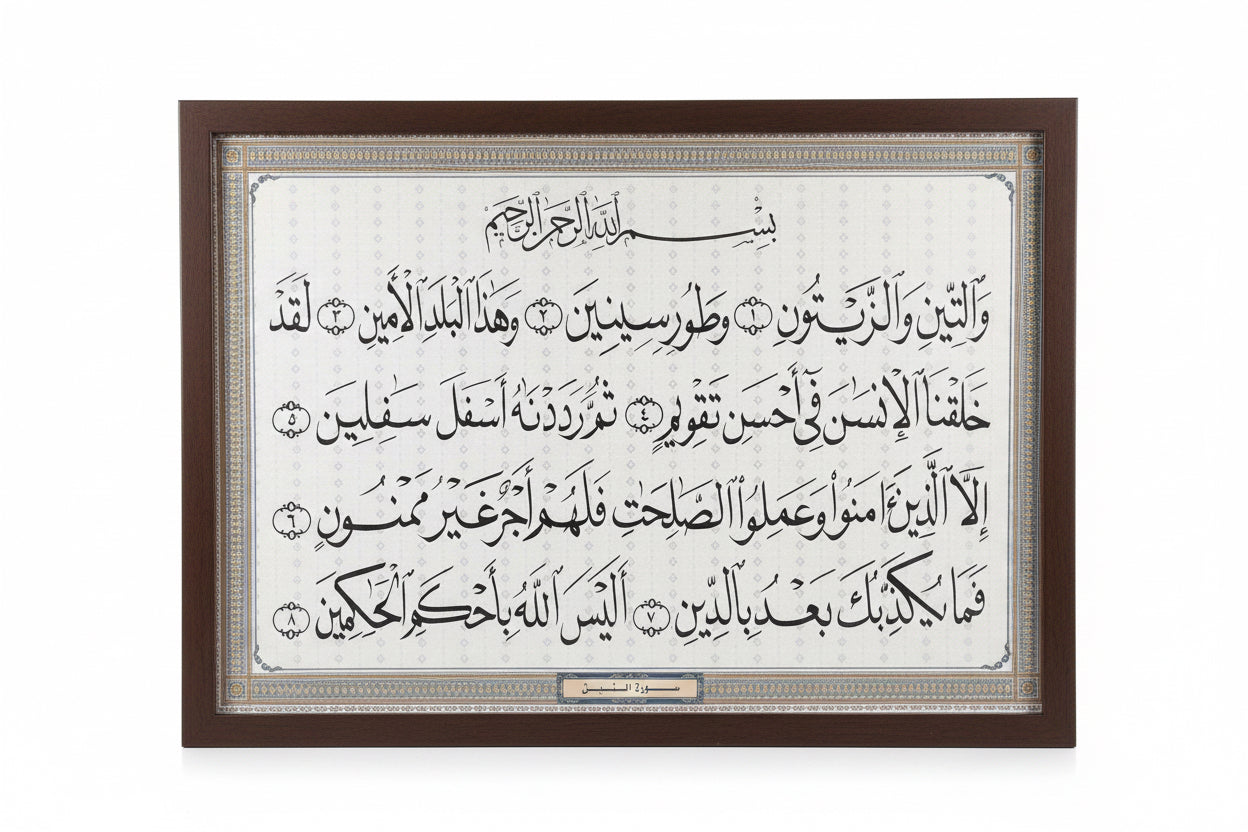 بِسْمِ ٱللَّهِ ٱلرَّحْمَٰنِ ٱلرَّحِيمِ
وَٱلتِّينِ وَٱلزَّيْتُونِ ١ وَطُورِ سِينِينَ ٢ وَهَٰذَا ٱلْبَلَدِ ٱلْأَمِينِ ٣ لَقَدْ
خَلَقْنَا ٱلْإِنسَٰنَ فِىٓ أَحْسَنِ تَقْوِيمٍ ٤ ثُمَّ رَدَدْنَٰهُ أَسْفَلَ سَٰفِلِينَ ٥
إِلَّا ٱلَّذِينَ ءَامَنُوا۟ وَعَمِلُوا۟ ٱلصَّٰلِحَٰتِ فَلَهُمْ أَجْرٌ غَيْرُ مَمْنُونٍ ٦
فَمَا يُكَذِّبُكَ بَعْدُ بِٱلدِّينِ ٧ أَلَيْسَ ٱللَّهُ بِأَحْكَمِ ٱلْحَٰكِمِينَ ٨
سورة التين